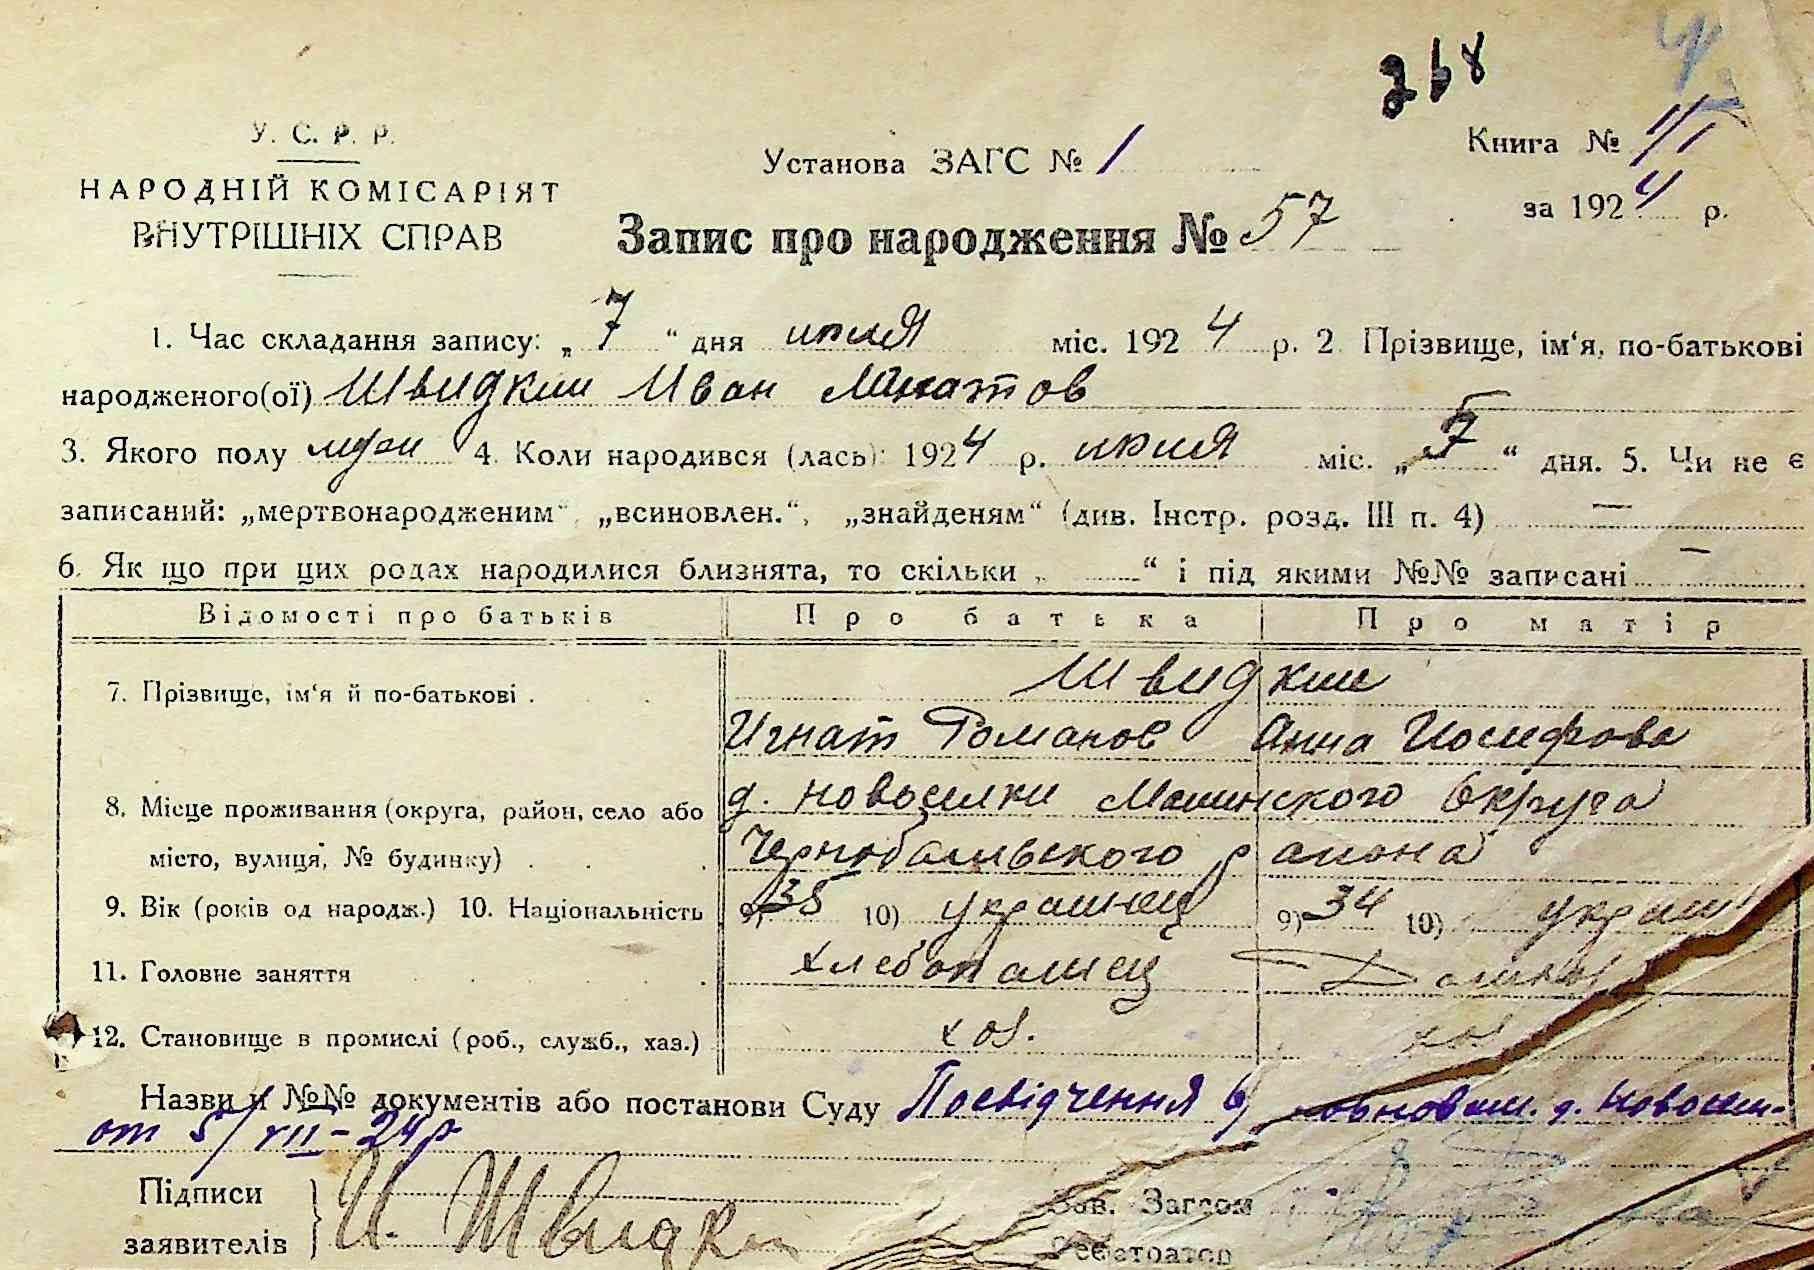 268
У. С. Р. Р.
НАРОДНІЙ КОМІСАРІЯТ
ВНУТРІШНІХ СПРАВ
Установа ЗАГС № 1
Книга №
за 1924 р.
Запис про народження № 57
1. Час складання запису: „7“ дня июля міс. 1924 р. 2 Прізвище, ім‘я, по-батькові
народженого(ої) Швидкий Иван Игнатов
3. Якого полу муж 4. Коли народився (лась): 1924 р. июля міс. „5“ дня. 5. Чи не є
записаний: „мертвонародженим“, „всиновлен.“, „знайденям“ (див. Інстр. розд. III п. 4) —
6. Як що при цих родах народилися близнята, то скільки „ “ і під якими №№ записані —
Відомості про батьків Про батька Про матір
7. Прізвище, ім‘я й по-батькові . Швидкии
Игнат Романов Анна Иосифова
8. Місце проживання (округа, район, село або д. Новоселки Округа
місто, вулиця, № будинку) . Чернобыльского района
9. Вік (років од народж.) 10. Національність 9) 35 10) украинец 9) 34 10) украин
11. Головне заняття хлебопашец Домаш
12. Становище в промислі (роб., служб., хаз.) хоз. хоз.
Назви й №№ документів або постанови Суду Посвідчення д. Новосел-
от 5/VII-24 р
Підписи
заявителів И. Швидки
Зав. Загсом
Реєстратор